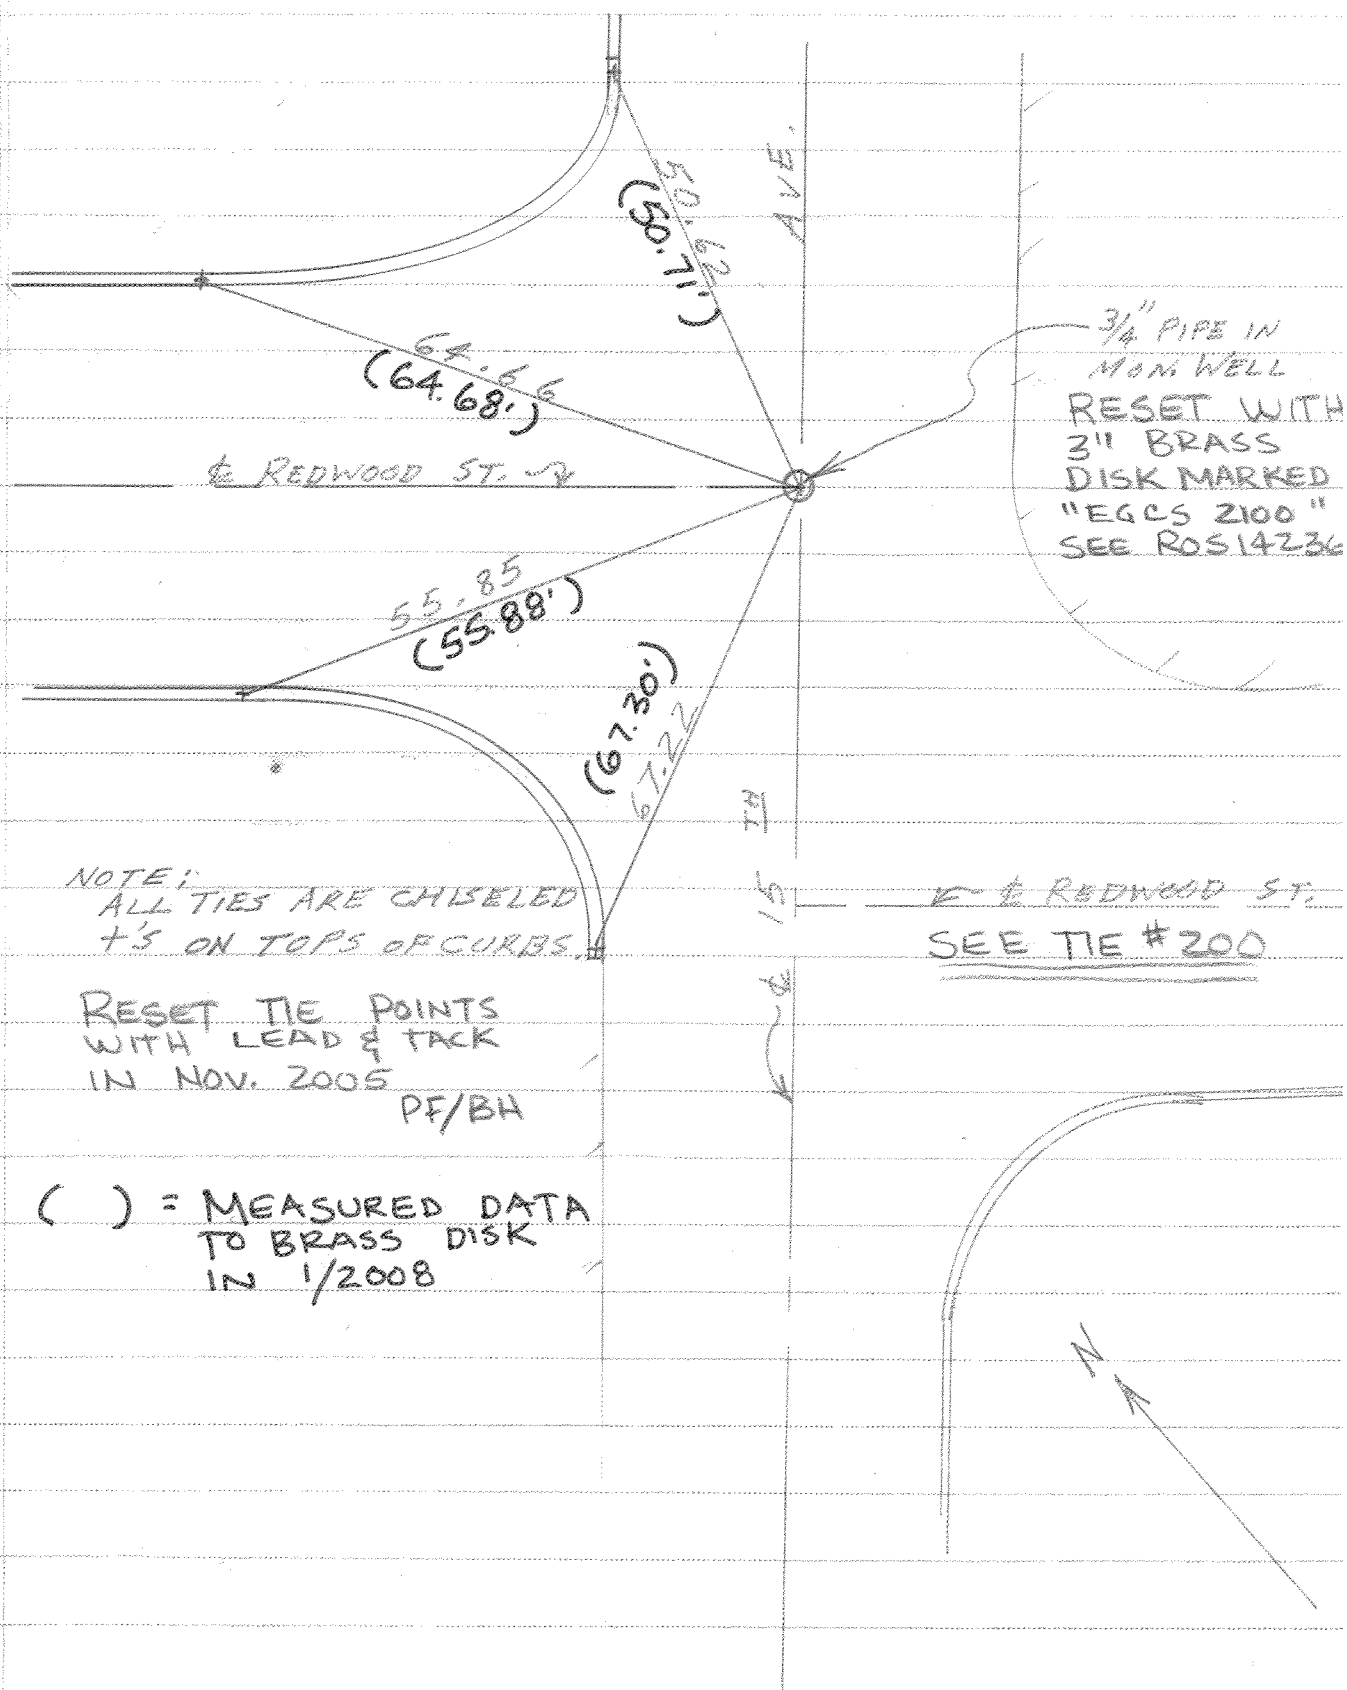 50.62
(50.71')
AVE.
3/4" PIPE IN
MON. WELL
RESET WITH
3" BRASS
DISK MARKED
"EGCS 2100"
SEE ROS 14236
64.66
(64.68')
℄ REDWOOD ST.
55.85
(55.88')
(67.30')
67.22
15 TH
℄
NOTE:
ALL TIES ARE CHISELED
+'S ON TOPS OF CURBS.
℄ REDWOOD ST.
SEE TIE #200
RESET TIE POINTS
WITH LEAD & TACK
IN NOV. 2005
PF/BH
( ) = MEASURED DATA
TO BRASS DISK
IN 1/2008
N